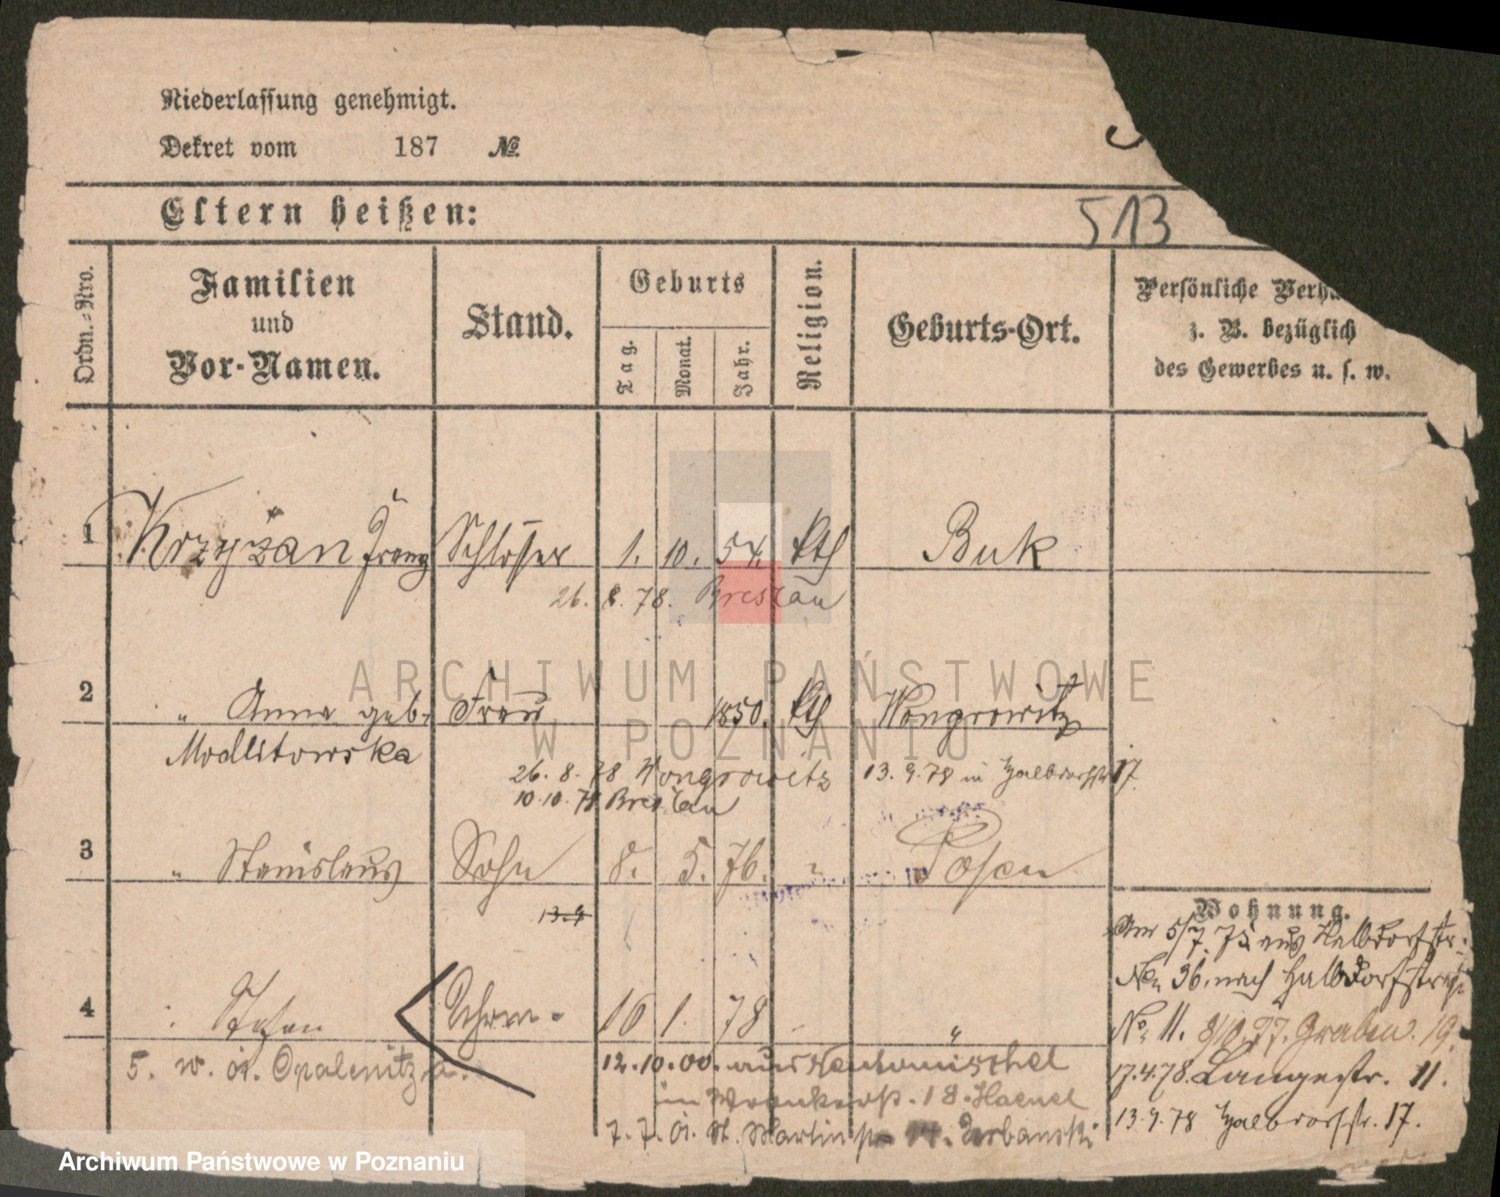 Niederlassung genehmigt.
Dekret vom 187 №
Eltern heißen:
513
Ordn.-Nro.
Familien und Vor-Namen.
Stand.
Geburts
Tag. Monat. Jahr.
Religion.
Geburts-Ort.
Persönliche Verh
z. B. bezüglich
des Gewerbes u. s. w.
1 Krzyżan Franz Schlosser 1. 10. 54. kth Buk
26. 8. 78. Breslau
ARCHIWUM PAŃSTWOWE
W POZNANIU
2 " Anna geb. Frau 1850. kth Wongrowitz
Modlitowska
26. 8. 78 Wongrowitz 13. 9. 78 in Halbdorfstr 17.
10. 10. 78 Breslau
3 " Stanislaus Sohn 8. 5. 76. " Posen
13.9
Wohnung.
5/7. 75 aus Halbdorfstr.
No. 36. nach Halbdorfstraße
4 Stefan 16 1. 78 "
No. 11. 8/10. 77. Graben. 19.
5. w. Opalenitza.
12. 10. 00. aus Neutomischel
17.4.78. Langestr. 11.
in Wronkerstr. 18. Haenel
13. 9. 78 Halbdorfstr. 17.
7. 7. 01. St. Martinstr. Urbanski
Archiwum Państwowe w Poznaniu